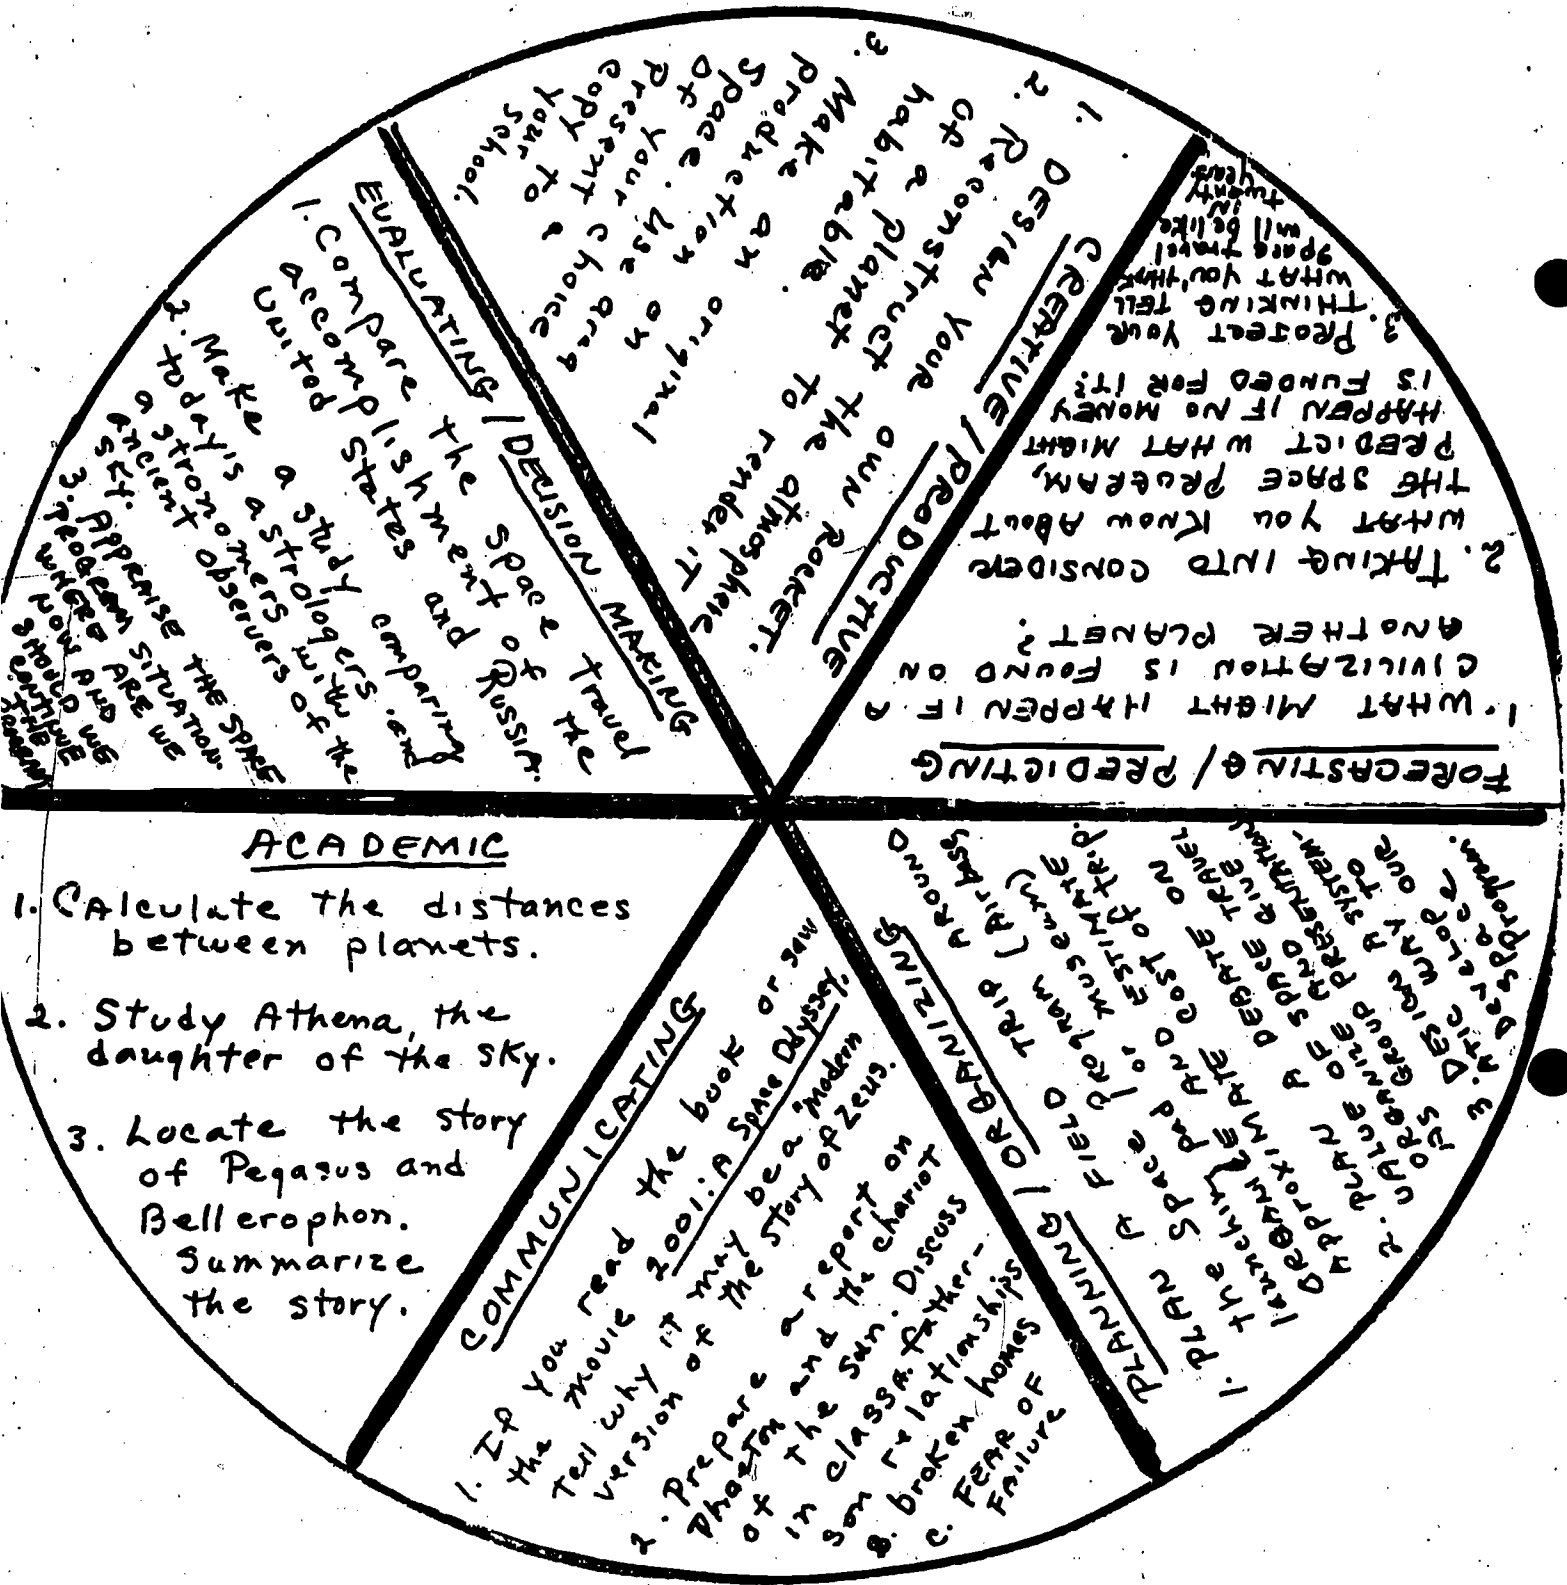 ACADEMIC
1. CAlculate the distances
between planets.
2. Study Athena, the
daughter of the sky.
3. Locate the story
of Pegasus and
Bellerophon.
Summarize
the story.
COMMUNICATING
1. If you read the book or saw
the movie 2001: A Space Odyssey,
tell why it may be a "modern
version of the story of Zeus.
2. Prepare a report on
Phaeton and the chariot
of the sun. Discuss
in class A. father-
son relationships
B. broken homes
C. FEAR OF
FAilure
PLANNING / ORGANIZING
1. PLAN A FIELD TRIP AROUND
the space program (Air base,
launching pad or museum)
ORGANIZE AND ESTIMATE
APPROXIMATE COST OF TRIP.
2. PLAN A DEBATE ON
VALUE OF SPACE TRAVEL
ORGANIZE AND GIVE
AS GROUP PRESENTATION
3. DESIGN A SYSTEM-
ATIC WAY TO
DEVELOP OUR
space
program.
FORECASTING / PREDICTING
1. WHAT MIGHT HAPPEN IF A
CIVILIZATION IS FOUND ON
ANOTHER PLANET?
2. TAKING INTO CONSIDER
WHAT YOU KNOW ABOUT
THE SPACE PROGRAM,
PREDICT WHAT MIGHT
HAPPEN IF NO MONEY
IS FUNDED FOR IT?
3. PROJECT YOUR
THINKING TELL
WHAT YOU THINK
space travel
will be like
in
twenty
years
CREATIVE / PRODUCTIVE
1. DESIGN YOUR OWN ROCKET.
2. Reconstruct the atmosphere
of a planet to render it
habitable.
3. Make an original
production on
space. Use area
of your choice
Present a
copy to
your
school.
EVALUATING / DECISION MAKING
1. Compare the space travel
accomplishment of the
United States and Russia.
2. Make a study comparing
today's astrologers and
astronomers with the
ancient observers of the
sky.
3. APPRAISE THE SPACE
PROGRAM SITUATION.
WHERE ARE WE
NOW AND
SHOULD WE
CONTINUE
THE
PROGRAM